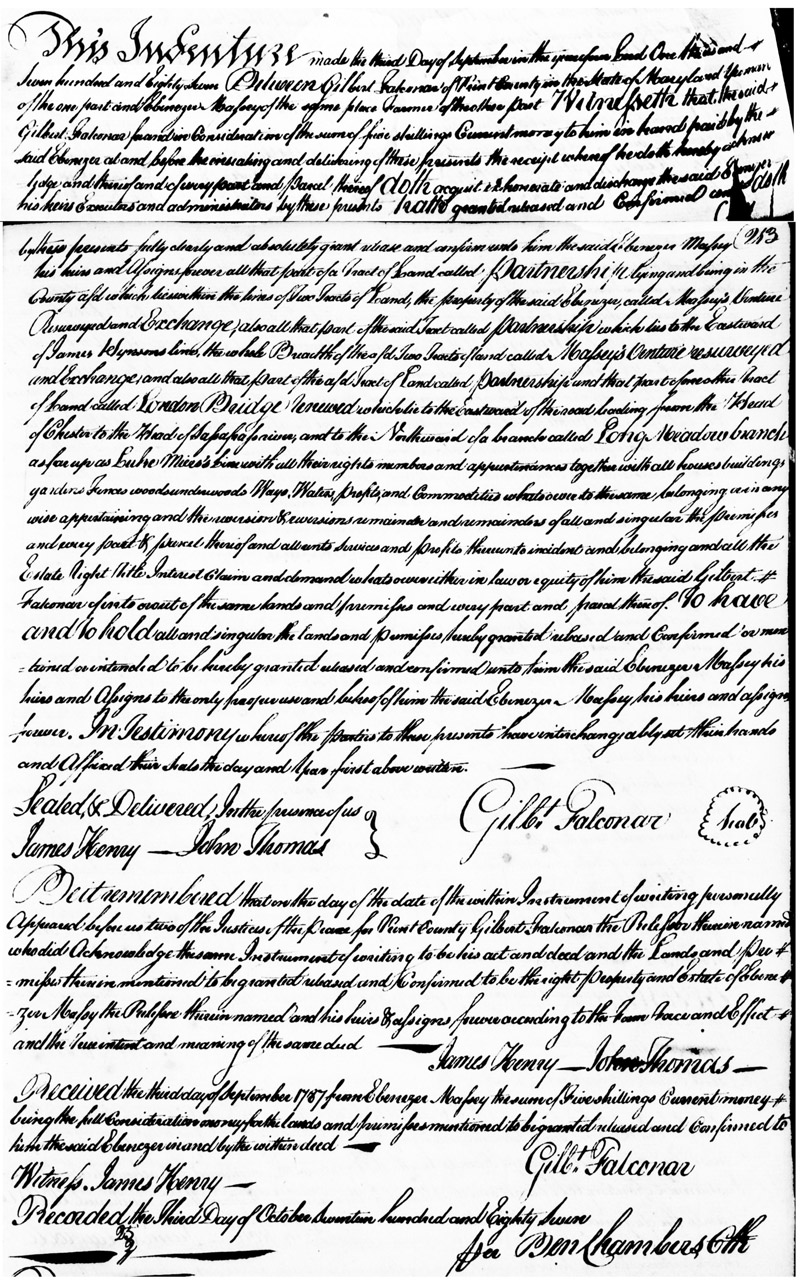 This Indenture made the third Day of September in the year of our Lord One thousand
Seven hundred and Eighty Seven Between Gilbert Falconar of Kent County in the State of Maryland Yeoman
of the one part and Ebenezer Massey of the same place Farmer of the other Part Witnesseth that the said
Gilbert Falconar for and in Consideration of the sum of five shillings Current money to him in hand paid by the
said Ebenezer at and before the ensealing and delivering of these presents the receipt whereof he doth hereby acknow
ledge and thereof and of every part and Parcel thereof doth acquit exhonerate and discharge the said Ebenezer
his heirs Executors and administrators by these presents hath granted released and Confirmed and doth
253
by these presents fully clearly and absolutely grant release and confirm unto him the said Ebenezer Massey
his heirs and Assigns forever all that part of a Tract of Land called Partnership lying and being in the
County afd which lies within the lines of Two Tracts of Land, the property of the said Ebenezer, called Massey's Venture
Resurveyed and Exchange, also all that part of the said Tract called Partnership which lies to the Eastward
of James Wynsons line, the whole Breadth of the afd Two Tracts of Land called Massey's Venture resurveyed
and Exchange, and also all that part of the afd Tract of Land called Partnership and that part of one other Tract
of Land called London Bridge Renewed which lie to the Eastward of the road leading from the Head
of Chester to the Head of Sassafras river, and to the Northward of a branch called Long Meadow branch
as far up as Luke Miers's line with all their rights members and appurtenances together with all houses buildings
gardens Fences woods underwoods Ways, Waters, Profits, and Commodities whatsoever to the same, belonging or in any
wise appertaining and the reversion & reversions remainder and remainders of all and singular the Premises
and every part & parcel thereof and all rents Services and profits thereunto incident and belonging and all the
Estate Right Title Interest Claim and demand whatsoever either in law or equity of him the said Gilbert
Falconar of into or out of the same lands and premisses and every part and parcel thereof. To have
and to hold all and singular the lands and premisses, hereby granted released and Confirmed or men
=tioned or intended to be hereby granted released and confirmed unto him the said Ebenezer Massey his
heirs and Assigns to the only proper use and behoof of him the said Ebenezer Massey his heirs and assigns
forever. In Testimony whereof the parties to these presents have interchangeably set their hands
and Affixed their Seals the day and Year first above written.
Sealed, & Delivered, In the presence of us
James Henry — John Thomas
Gilbt. Falconar
Seal
Be it remembered that on the day of the date of the within Instrument of writing personally
Appeared before us two of the Justices of the Peace for Kent County Gilbert Falconar the Releasor therein named
who did Acknowledge the same Instrument of writing to be his act and deed and the Lands and Pre
=misses therein mentioned to be granted released and Confirmed to be the right Property and Estate of Ebene
=zer Massey the Releasee therein named and his heirs & assigns forever according to the Form Force and Effect
and the true intent and meaning of the same deed
James Henry — John Thomas —
Received the third day of September 1787 from Ebenezer Massey the sum of Five shillings Current money
being the full Consideration money for the lands and premisses mentioned to be granted released and Confirmed to
him the said Ebenezer in and by the within deed
Gilbt. Falconar
Witness. James Henry —
Recorded the Third Day of October Seventeen hundred and Eighty Seven
Per Ben Chambers Clk